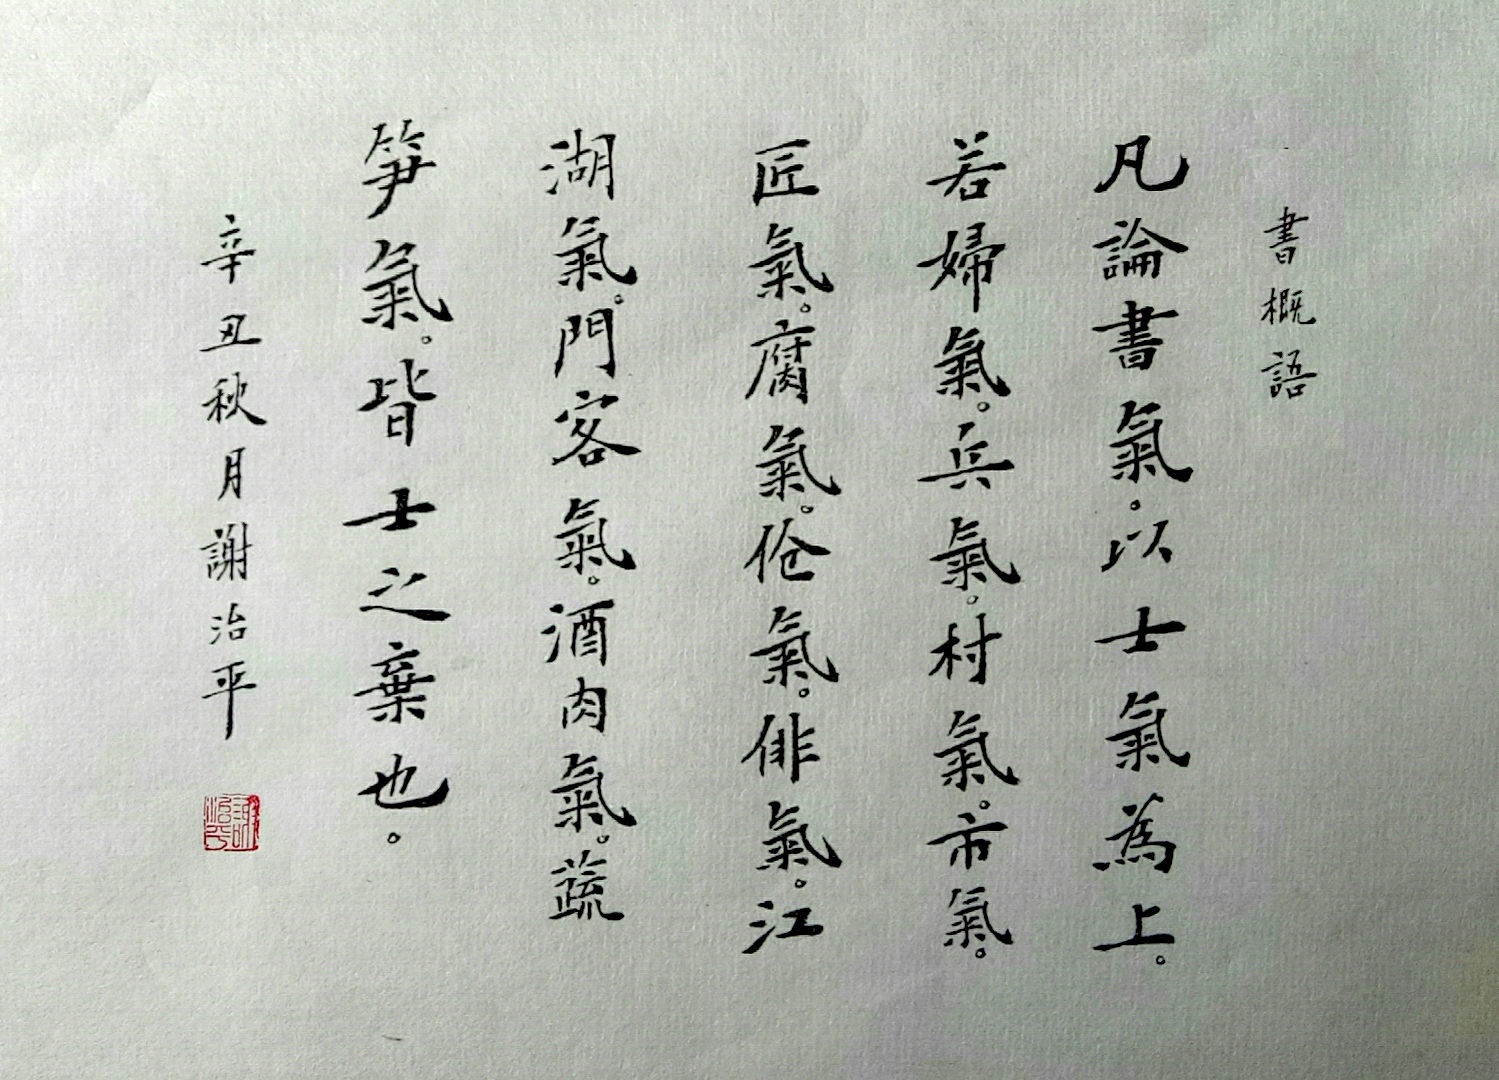 書概語
凡論書氣。以士氣為上。
若婦氣。兵氣。村氣。市氣。
匠氣。腐氣。伧氣。俳氣。江
湖氣。門客氣。酒肉氣。蔬
笋氣。皆士之棄也。
辛丑秋月謝治平
謝治平